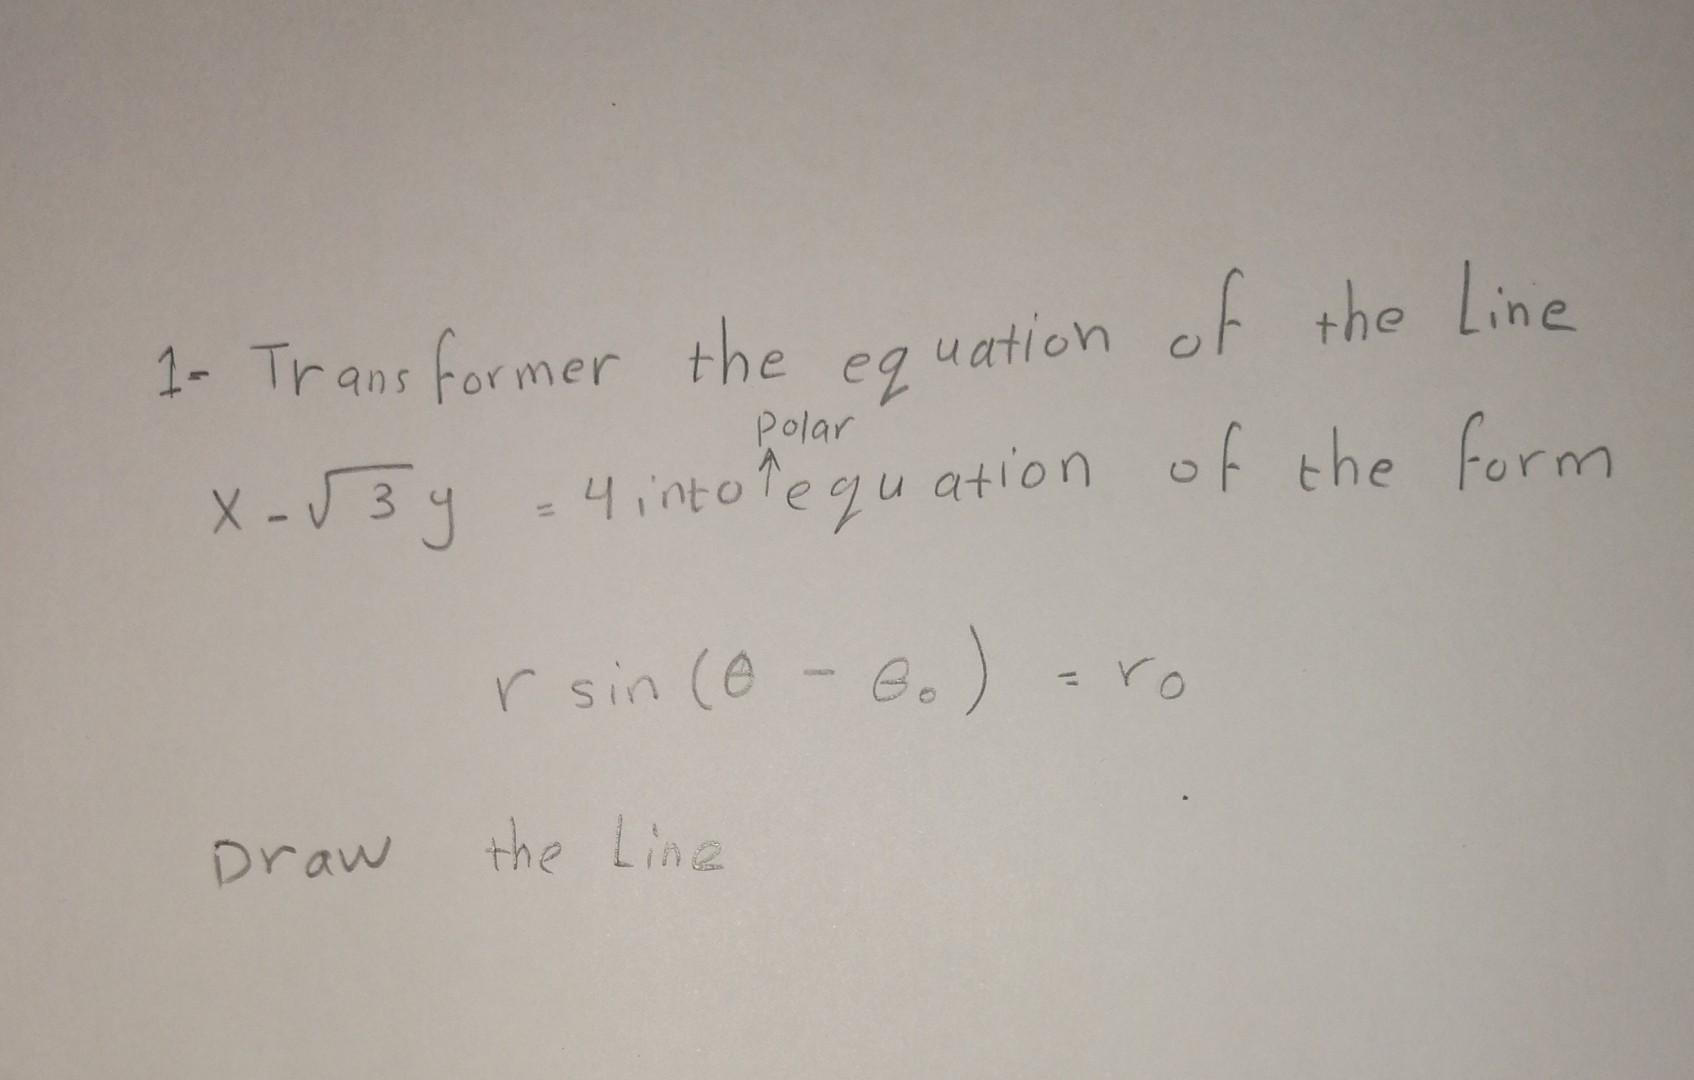 1- Transformer the equation of the Line
Polar
x - √3 y = 4 into ↑ equation of the form
r sin (θ - θ₀) = r₀
Draw the Line